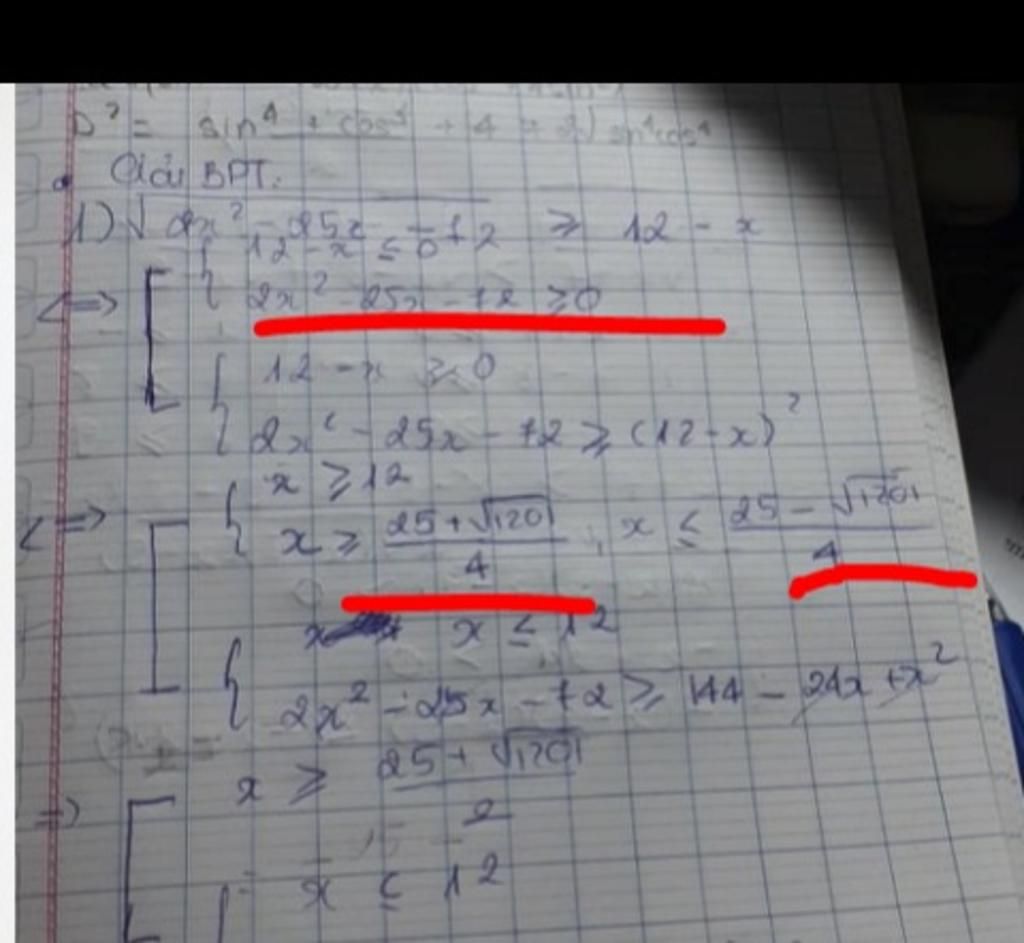 D² = sin⁴ + cos⁴ + 4 + 2) sin⁴cos⁴
Giải BPT:
1) √(2x² - 25x - 72) ≥ 12 - x
12 - x ≤ 0
<=> [ { 2x² - 25x - 72 ≥ 0
{ 12 - x ≥ 0
2x² - 25x - 72 ≥ (12 - x)²
<=> [ { x ≥ 12
x ≥ (25 + √1201)/4 , x ≤ (25 - √1201)/4
{ x ≤ 12
2x² - 25x - 72 ≥ 144 - 24x + x²
=> [ x ≥ (25 + √1201)/2
{ x ≤ 12